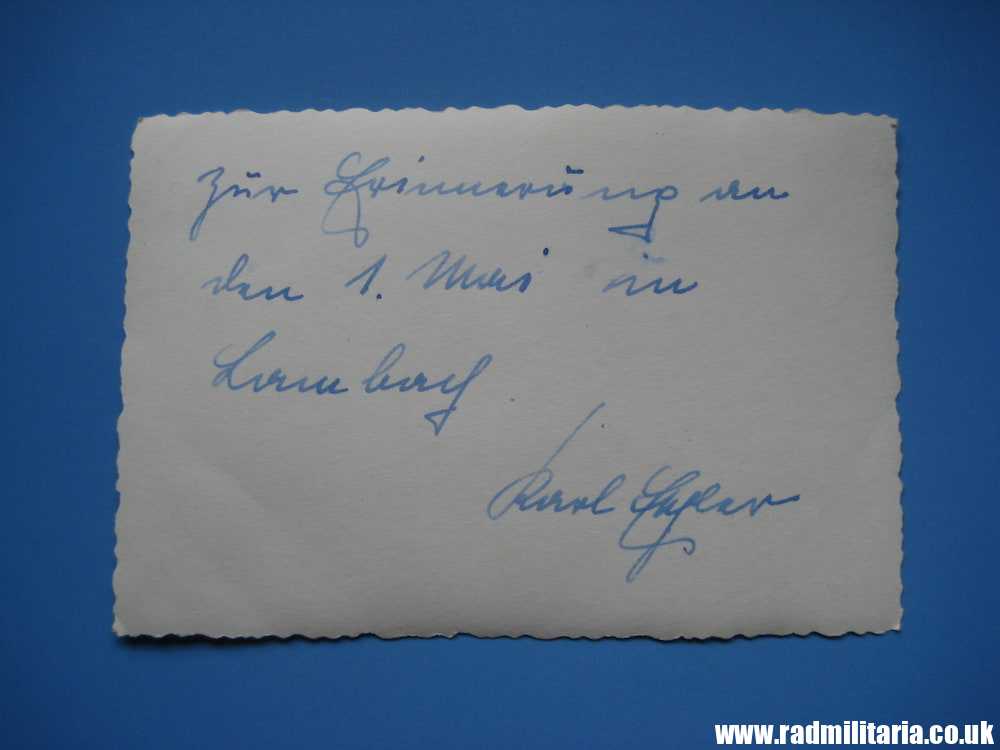 Zur Erinnerung an
den 1. Mai in
Lambach
Karl
www.radmilitaria.co.uk